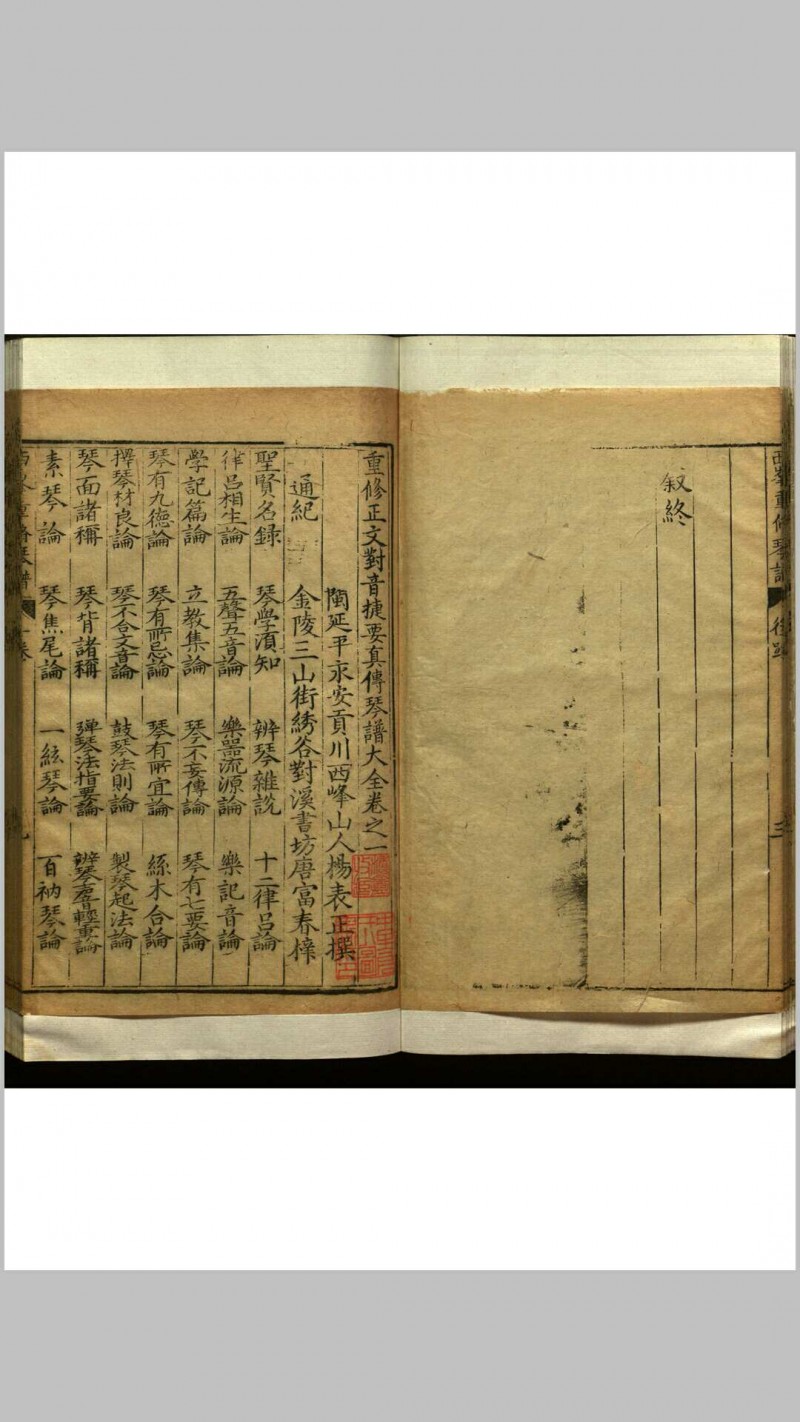 敘終
重修正文對音捷要真傳琴譜大全卷之一
閩延平永安貢川西峰山人楊表正撰
金陵三山街綉谷對溪書坊唐富春梓
通紀
聖賢名録 琴學須知 辨琴雜説 十二律吕論
律吕相生論 五聲五音論 樂器流源論 樂記音論
學記篇論 立教集論 琴不妄傳論 琴有七要論
琴有九德論 琴有所忌論 琴有所宜論 絲木合論
擇琴材良論 琴不合文音論 鼓琴法則論 製琴起法論
琴面諸稱 琴背諸稱 彈琴法指要論 辨琴聲音輕重論
素琴論 琴焦尾論 一絃琴論 百衲琴論